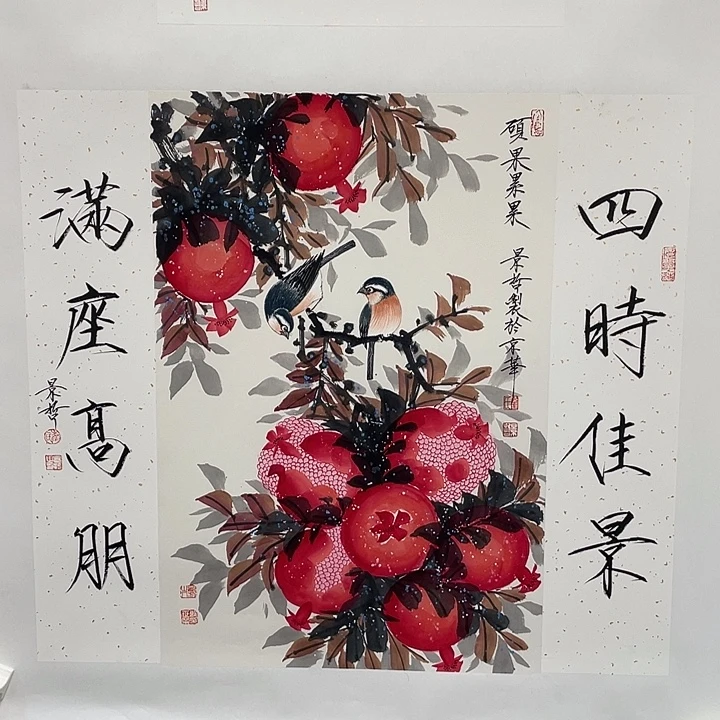 四時佳景
碩果累累
景哲製於京華
滿座高朋
景哲